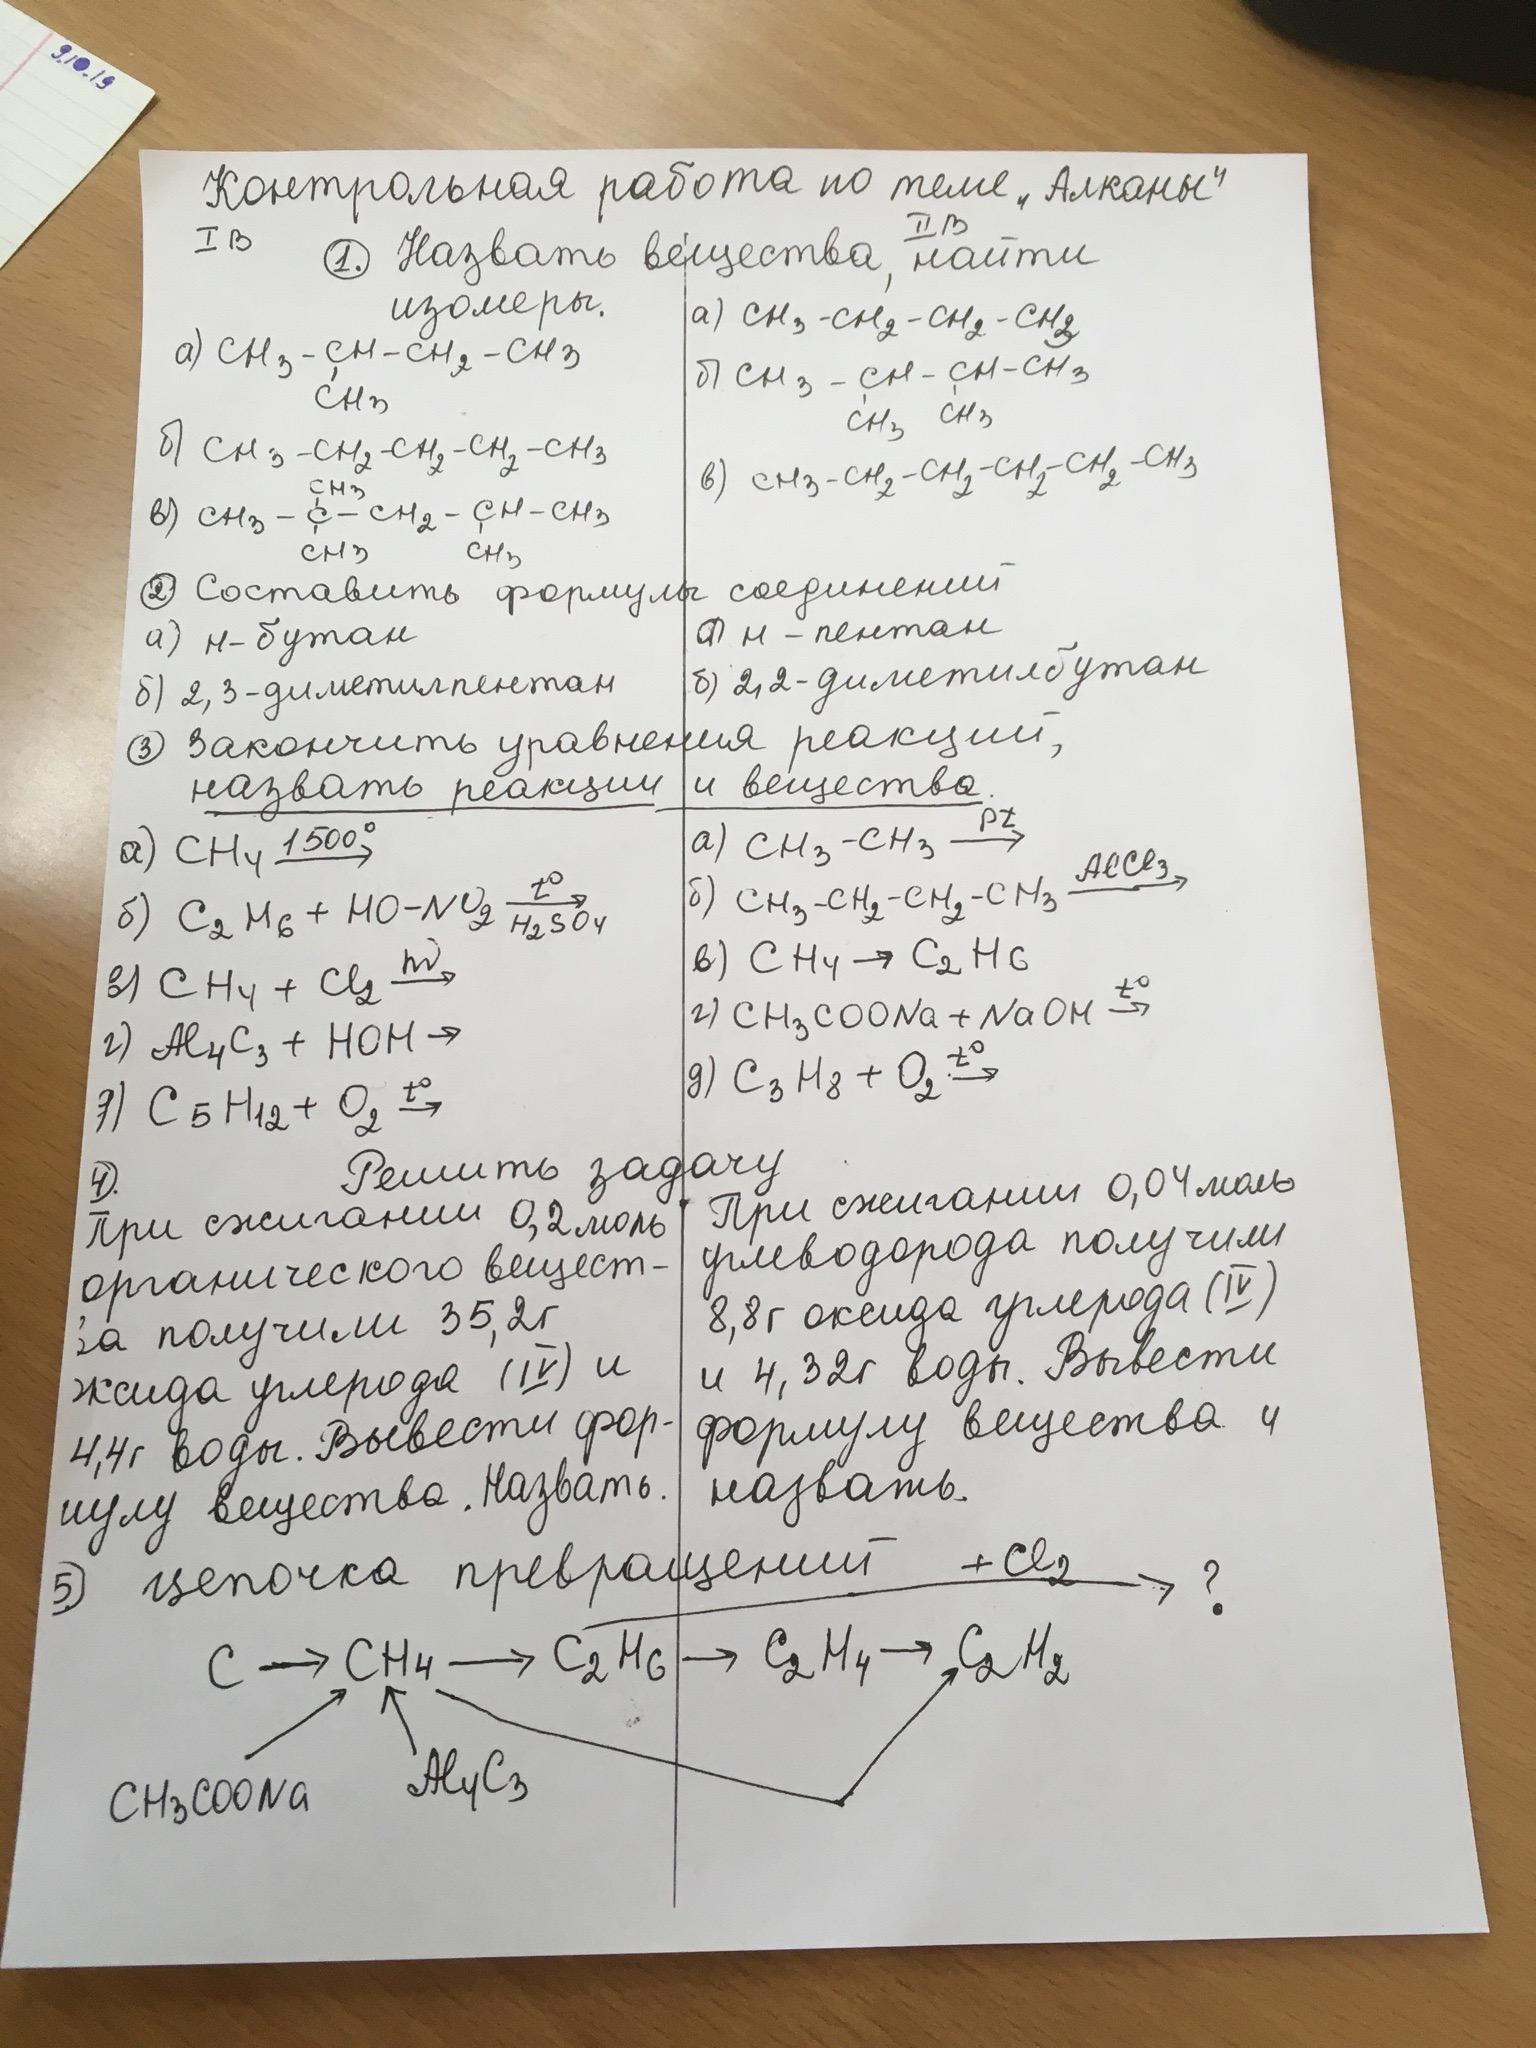 9.10.19
Контрольная работа по теме „Алканы"
I В
II В
1. Назвать вещества, найти
изомеры.
а) CH3 - CH - CH2 - CH3
CH3
б) CH3 - CH2 - CH2 - CH2 - CH3
CH3
в) CH3 - C - CH2 - CH - CH3
CH3 CH3
а) CH3 - CH2 - CH2 - CH2
б) CH3 - CH - CH - CH3
CH3 CH3
в) CH3 - CH2 - CH2 - CH2 - CH2 - CH3
2 Составить формулы соединений
а) н-бутан
б) 2,3-диметилпентан
а) н - пентан
б) 2,2-диметилбутан
3 Закончить уравнения реакций,
назвать реакции и вещества.
а) CH4 1500° →
б) C2H6 + HO-NO2 t° → H2SO4
в) CH4 + Cl2 hν →
г) Al4C3 + HOH →
д) C5H12 + O2 t° →
а) CH3 - CH3 Pt →
б) CH3 - CH2 - CH2 - CH3 AlCl3 →
в) CH4 → C2H6
г) CH3COONa + NaOH t° →
д) C3H8 + O2 t° →
4. Решить задачу
При сжигании 0,2 моль
органического вещест-
ва получили 35,2г
оксида углерода (IV) и
4,4г воды. Вывести фор-
мулу вещества. Назвать.
При сжигании 0,04 моль
углеводорода получили
8,8г оксида углерода (IV)
и 4,32г воды. Вывести
формулу вещества и
назвать.
5) Цепочка превращений +Cl2 → ?
C → CH4 → C2H6 → C2H4 → C2H2
CH3COONa Al4C3